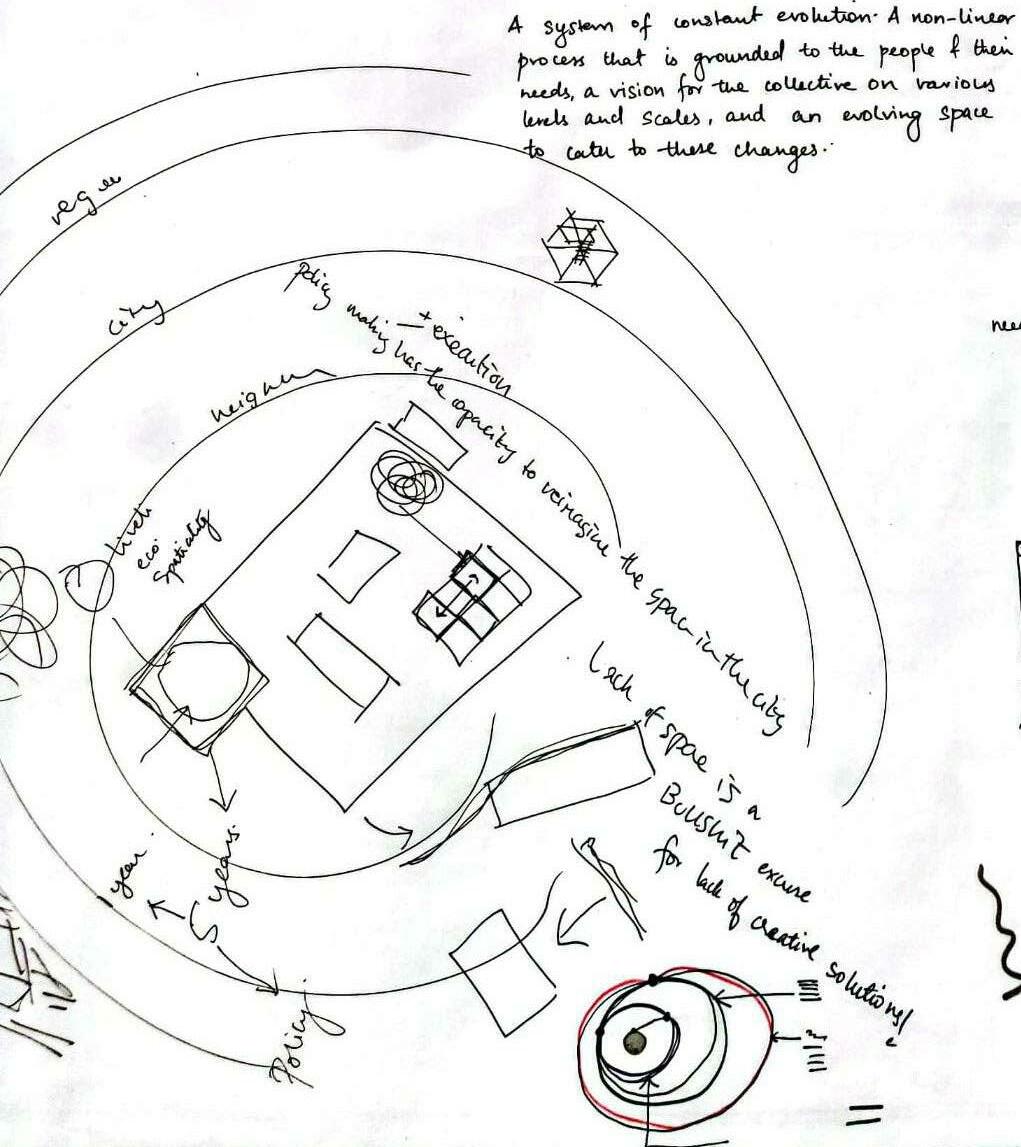 A system of constant evolution. A non-linear
process that is grounded to the people & their
needs, a vision for the collective on various
levels and scales, and an evolving space
to cater to these changes..
city
policy making has the capacity to reimagine the space in the city
+ execution
eco
spatiality
Lack of space is a
BullShit excuse
for lack of creative solutions!
year
5 years
Policy.